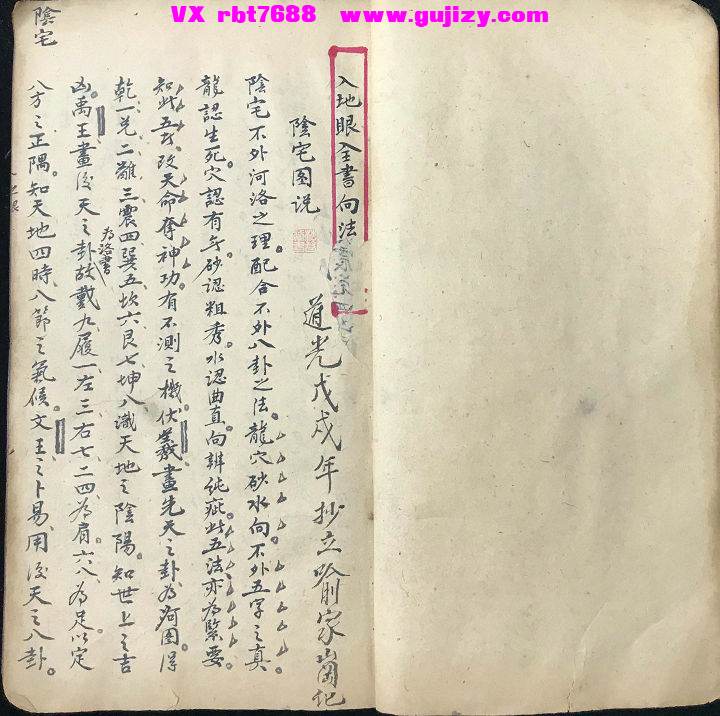 VX rbt7688 www.gujizy.com
入地眼全書向法
道光戊戌年抄立喻家崗化
陰宅图说
陰宅不外河洛之理。配合不外八卦之法。龍穴砂水向。不外五字之真。
龍認生死穴認有穷。砂認粗秀。水認曲直。向辨纯疵。此五法亦為緊要。
知此五者。改天命奪神功。有不測之機。伏羲畫先天之卦。為河图。得
乾一兑二離三震四巽五坎六艮七坤八。識天地之陰陽。知世上之吉
凶。禹王畫後天之卦為洛書。故戴九履一左三右七二四為肩。六八為足。以定
八方之正隅。知天地四時。八節之氣候。文王之卜易。用後天之八卦。
陰宅